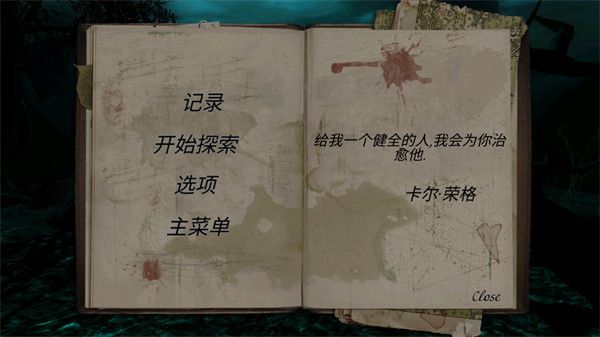 记录
开始探索
选项
主菜单
给我一个健全的人,我会为你治
愈他.
卡尔·荣格
Close